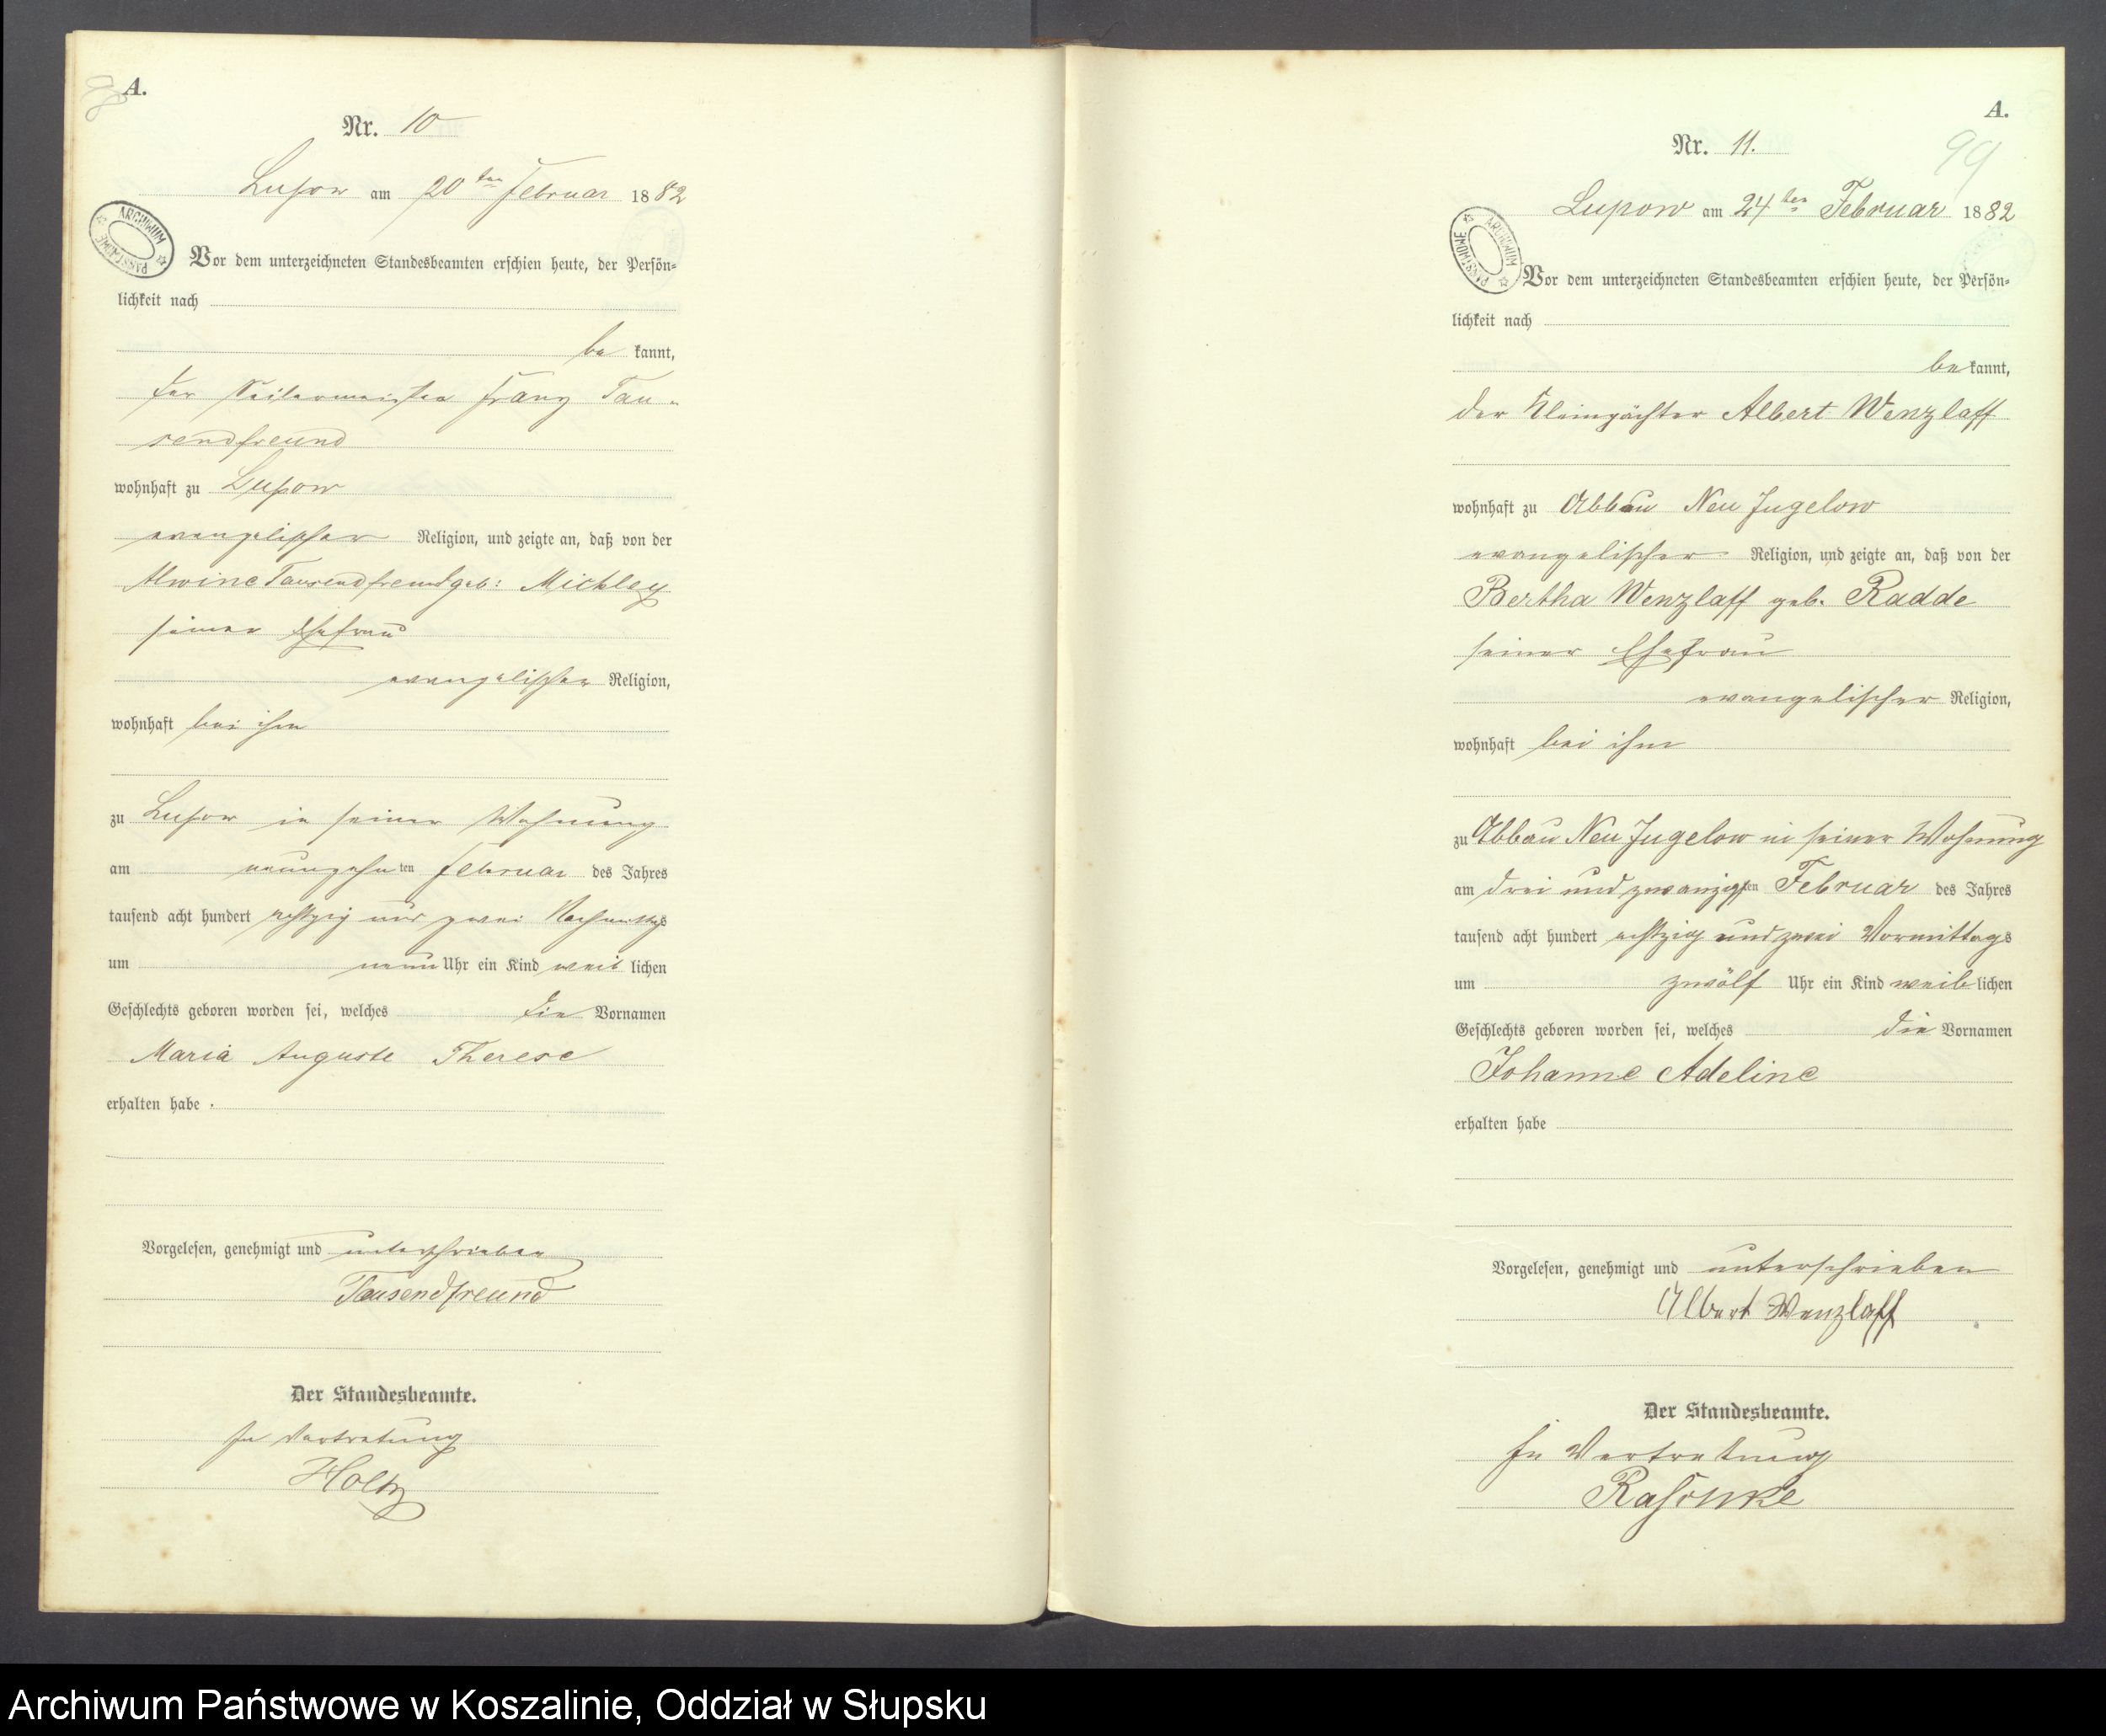 98
A.
Nr. 10
Lupow am 20ten Februar 1882
ARCHIWUM
PAŃSTWOWE
Vor dem unterzeichneten Standesbeamten erschien heute, der Persön-
lichkeit nach
be kannt,
der Seilermeister Franz Tau-
sendfreund
wohnhaft zu Lupow
evangelischer Religion, und zeigte an, daß von der
Alwine Tausendfreund geb: Mickley
seiner Ehefrau
evangelischer Religion,
wohnhaft bei ihm
zu Lupow in seiner Wohnung
am neunzehnten Februar des Jahres
tausend acht hundert achtzig und zwei Nachmittags
um neun Uhr ein Kind weiblichen
Geschlechts geboren worden sei, welches die Vornamen
Maria Auguste Therese
erhalten habe.
Vorgelesen, genehmigt und unterschrieben
Tausendfreund
Der Standesbeamte.
In Vertretung
Holtz
A.
99
Nr. 11.
Lupow am 24ten Februar 1882
ARCHIWUM
PAŃSTWOWE
Vor dem unterzeichneten Standesbeamten erschien heute, der Persön-
lichkeit nach
be kannt,
der Kleinpächter Albert Wenzlaff
wohnhaft zu Abbau Neu Jugelow
evangelischer Religion, und zeigte an, daß von der
Bertha Wenzlaff geb. Radde
seiner Ehefrau
evangelischer Religion,
wohnhaft bei ihm
zu Abbau Neu Jugelow in seiner Wohnung
am drei und zwanzigsten Februar des Jahres
tausend acht hundert achtzig und zwei Vormittags
um zwölf Uhr ein Kind weiblichen
Geschlechts geboren worden sei, welches die Vornamen
Johanne Adeline
erhalten habe
Vorgelesen, genehmigt und unterschrieben
Albert Wenzlaff
Der Standesbeamte.
In Vertretung
Archiwum Państwowe w Koszalinie, Oddział w Słupsku